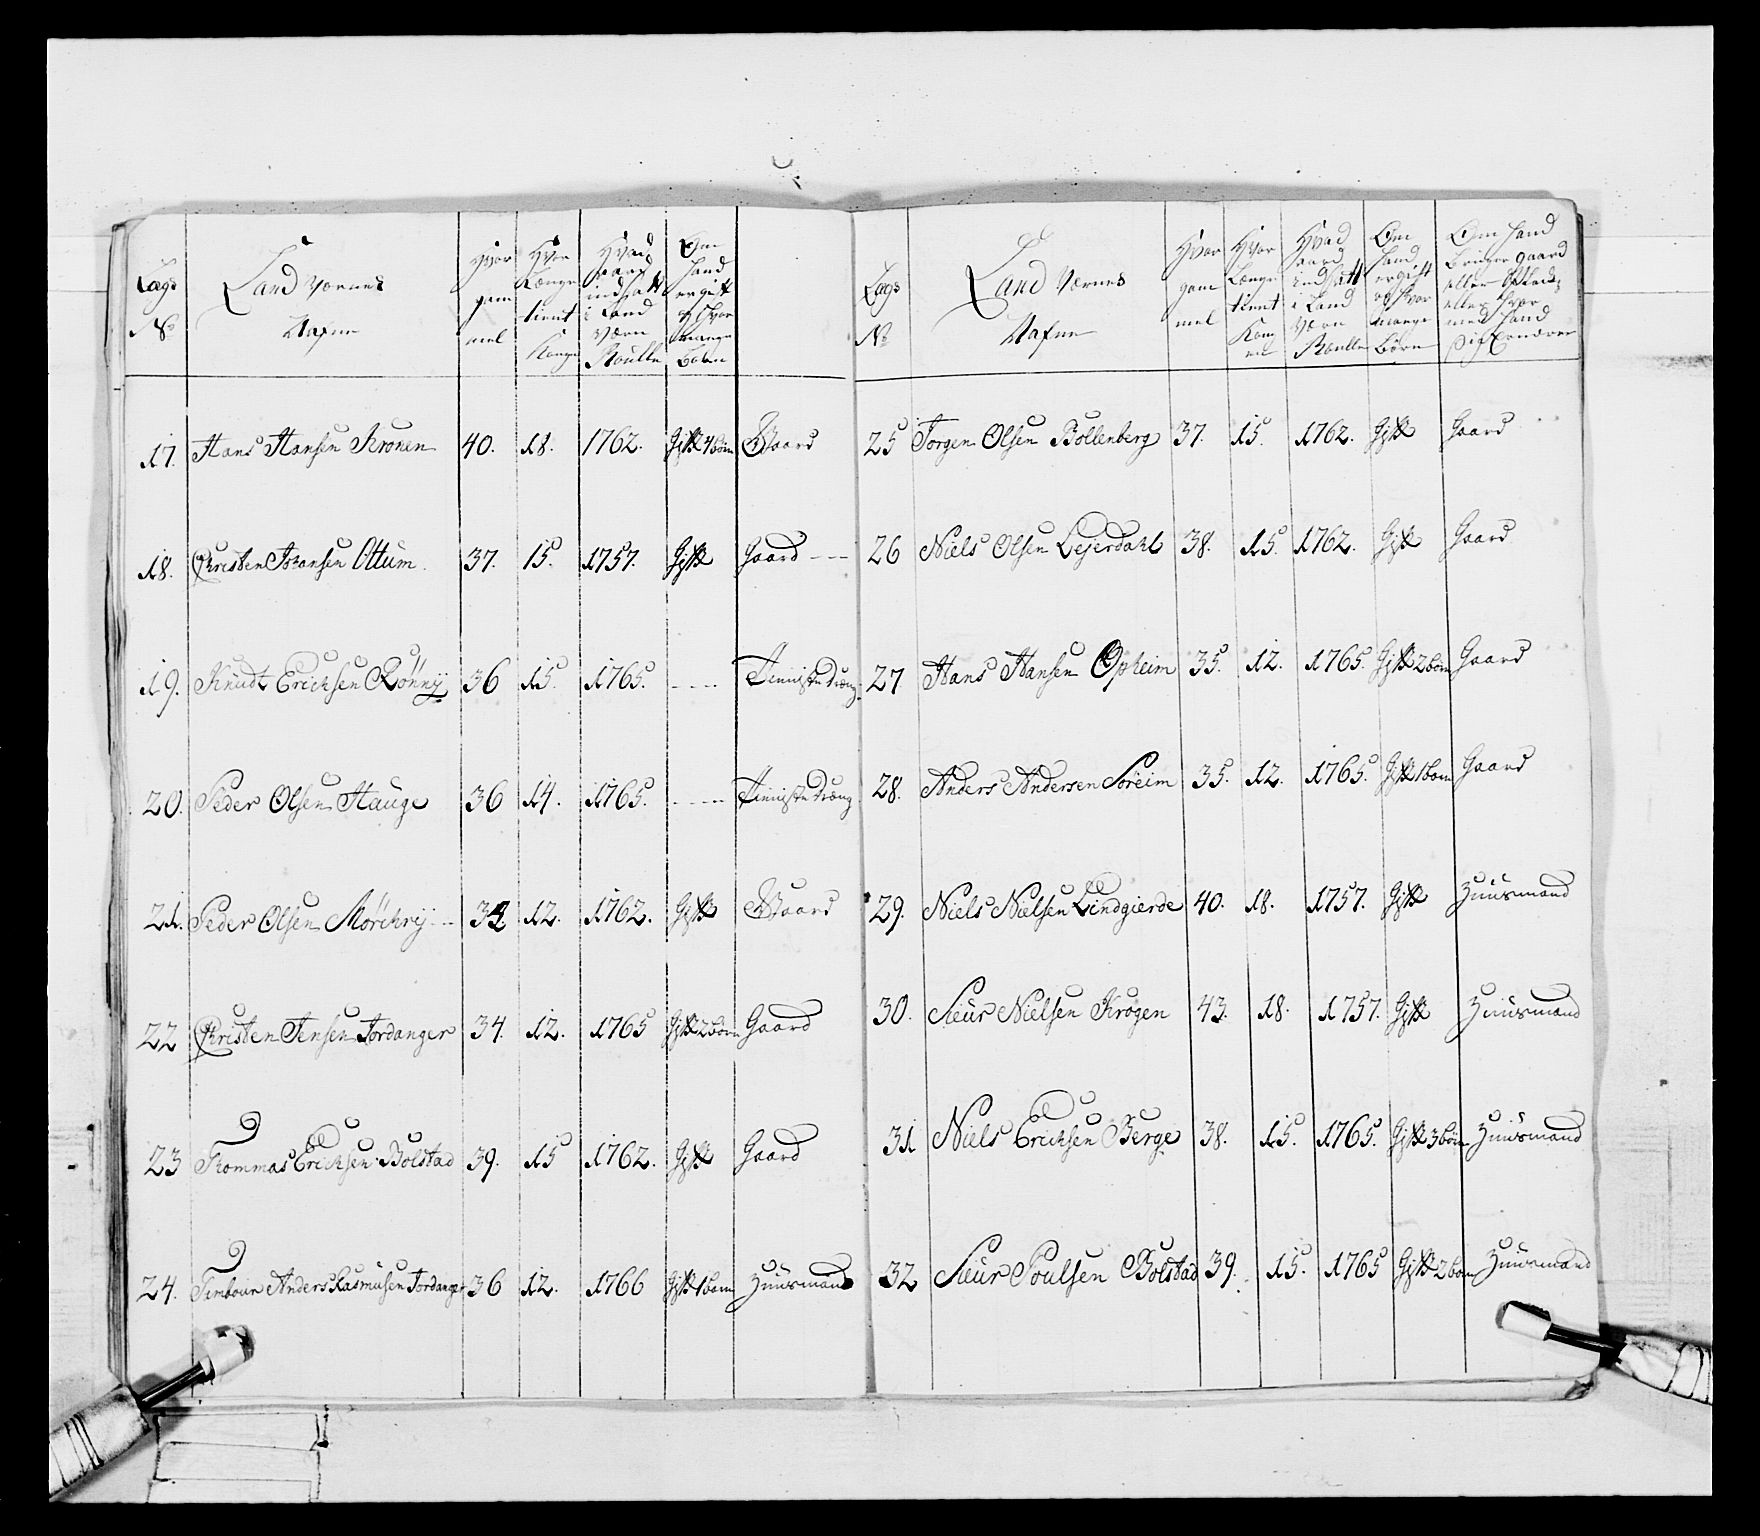 Lægs
No
Land værnes
Nafne
Hvor
gam
mel
Hvor
Længe
tient
Konge
Hvad
aard
indsatt
i Land
værn
Roulle
Om
hand
er gift
og hvor
mange
Børn
17. Hans Hansen Kronen 40. 18. 1762. Gift 4 børn Gaard
18. Christen Johansen Ottum 37. 15. 1757. Gift Gaard
19. Knudt Erichsen Rønnij 36 15. 1765. ---- Tieniste Dreng
20. Peder Olsen Hauge 36 14. 1765. ---- Tieniste Dreng
21. Peder Olsen Mörchrij 34 12. 1762. Gift Gaard
22 Christen Jensen Jordanger 34. 12. 1765 Gift 2 børn Gaard
23 Thommas Erichsen Bolstad 39. 15 1762. Gift Gaard
24. Tambour Anders Rasmusen Jordanger 36 12. 1766 Gift 1 barn Huusmand
Lægs
No
Land Værnes
Nafne
Hvor
gam
mel
Hvor
Længe
tient
Kong
en
Hvad
aard
indsatt
i Land
Værn
Roulle
Om
hand
er gift
og hvor
mange
Børn
Om hand
bruger gaard
eller
eller Hvor
med hand
sig Ernærer
25 Torgen Olsen Bollenberg 37. 15. 1762. Gift Gaard
26 Niels Olsen Lejerdahl 38. 15. 1762. Gift Gaard
27 Hans Hansen Opheim 35. 12. 1765. Gift 2 børn Gaard
28. Anders Andersen Soreim 35. 12. 1765. Gift 1 barn Gaard
29. Niels Nielsen Lindgierde 40. 18. 1757. Gift Huusmand
30. Siur Nielsen Krogen 43. 18. 1757. Gift Huusmand
31 Niels Erichsen Berge 38. 15. 1765. Gift 3 børn Huusmand
32 Siur Poulsen Bolstad 39. 15. 1765 Gift 2 børn Huusmand